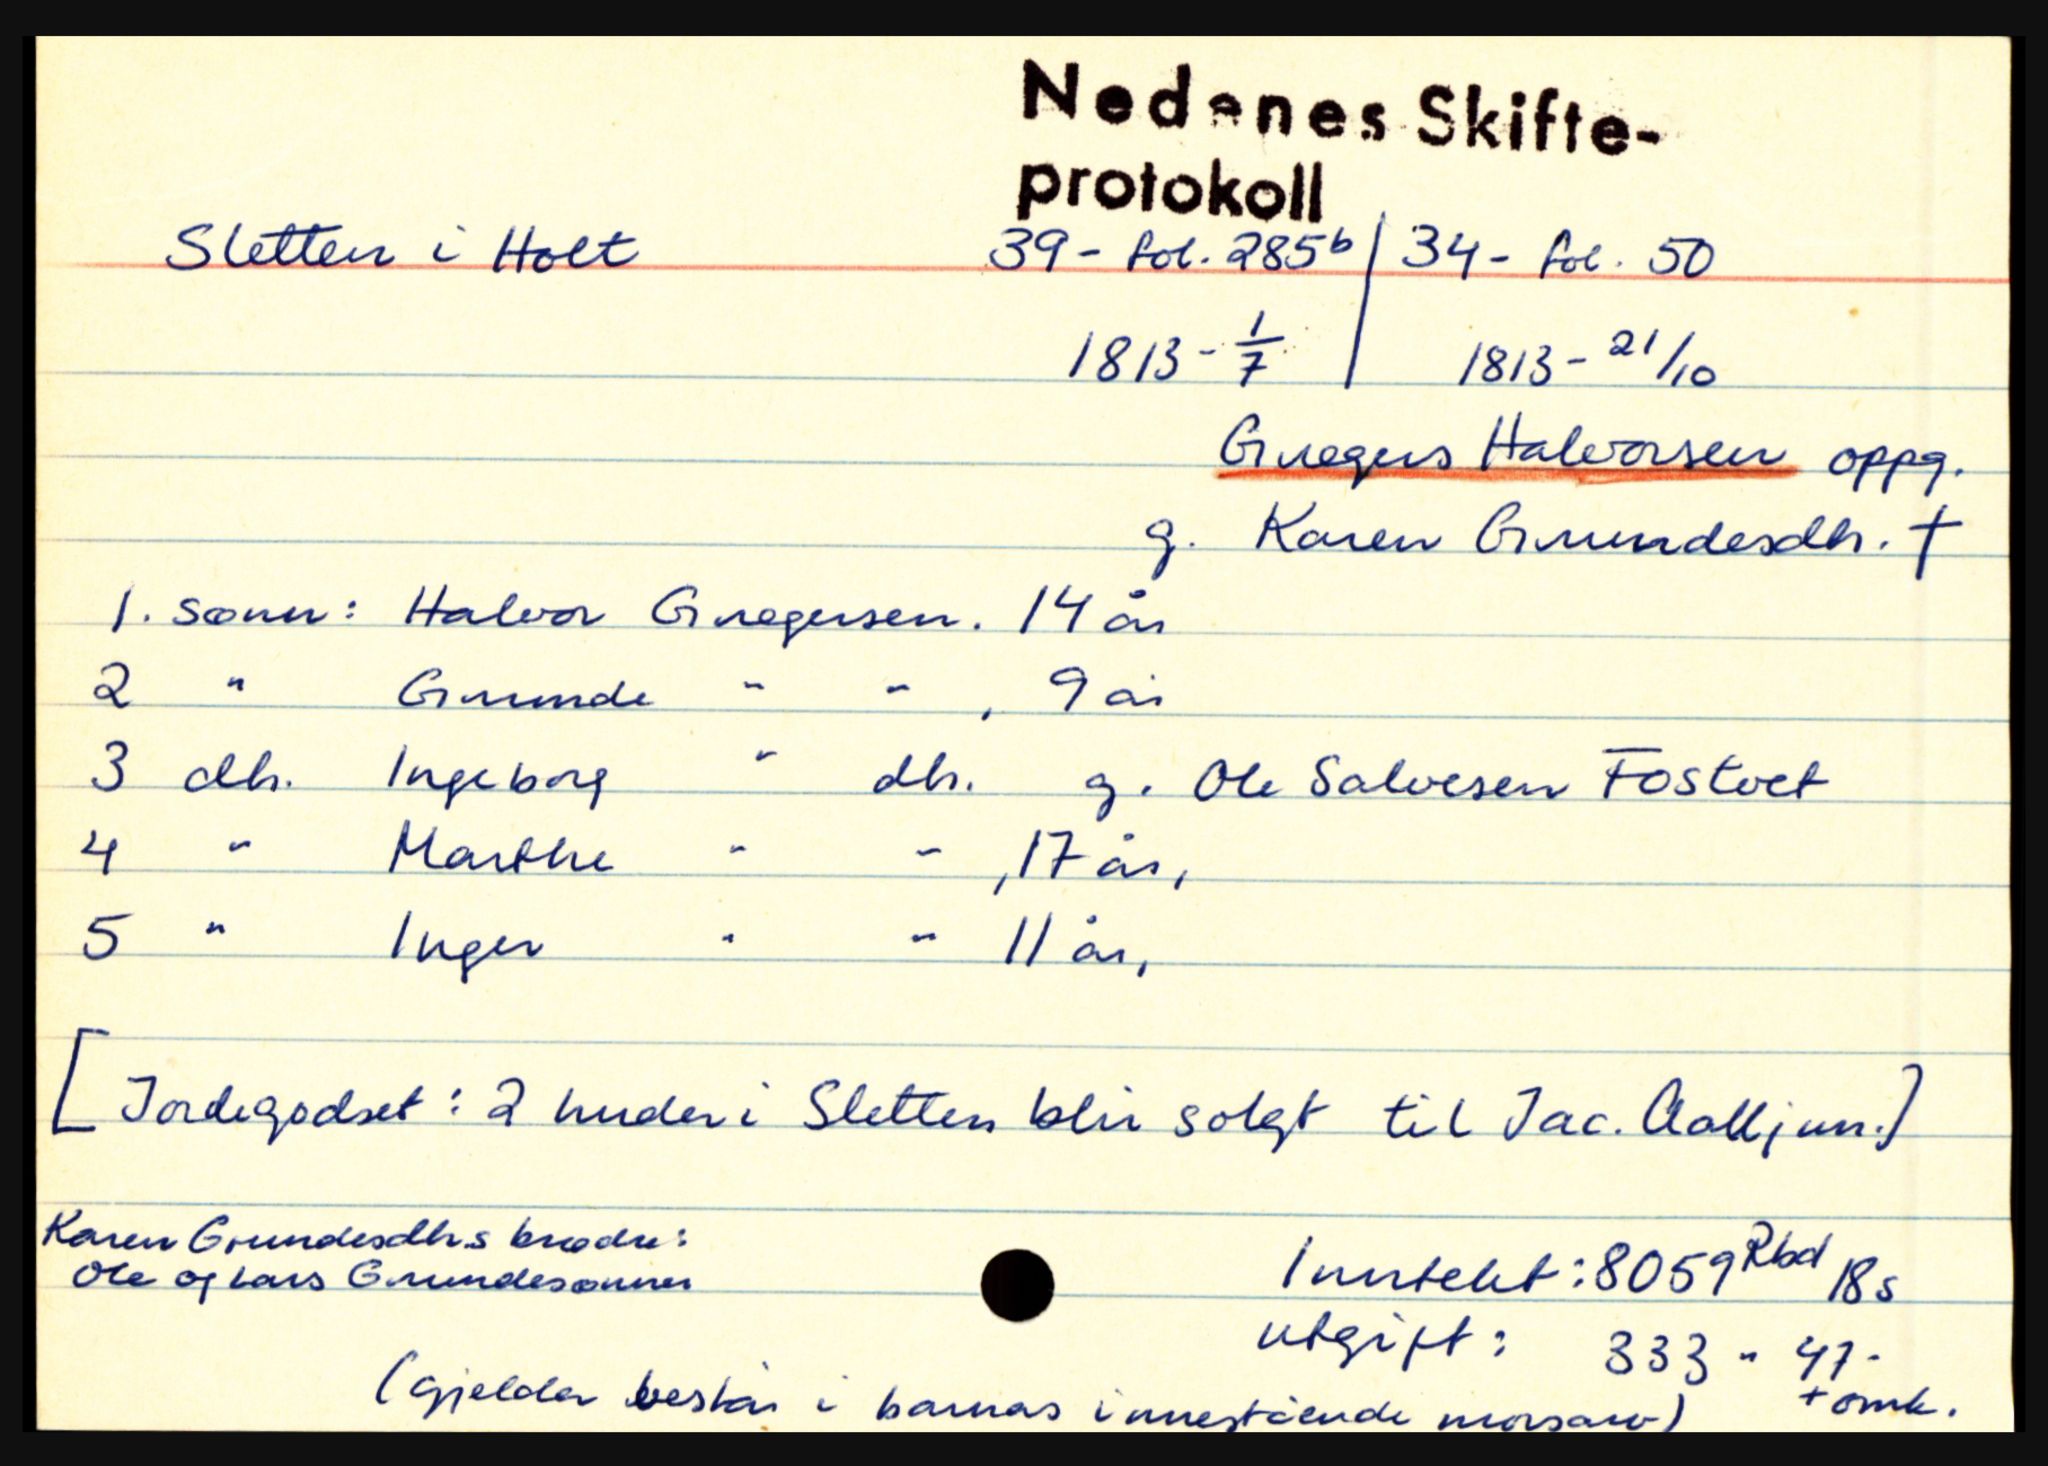 Nedenes Skifte-
protokoll
Sletten i Holt 39 - fol. 285b / 34 - fol. 50
1813 - 1/7 1813 - 21/10
Gregers Halvorsen oppg.
g. Karen Grundesdtr. †
1. sønn: Halvor Gregersen. 14 år
2 " Grunde " " , 9 år
3 dtr. Ingeborg " dtr. g. Ole Salvesen Fostvet
4 " Marthe " " , 17 år,
5 " Inger " " 11 år,
[Jordegodset: 2 huder i Sletten blir solgt til Jac. Aalljun.]
Karen Grundesdtr.s brødre:
Ole og Lars Grundesønner
Inntekt: 8059 Rbd 18 s
utgift: 333 " 47 -
+ omk.
(gjelden består i barnas innestående morsarv)